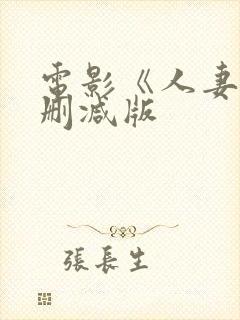 電影《人妻
刪減版
張長生